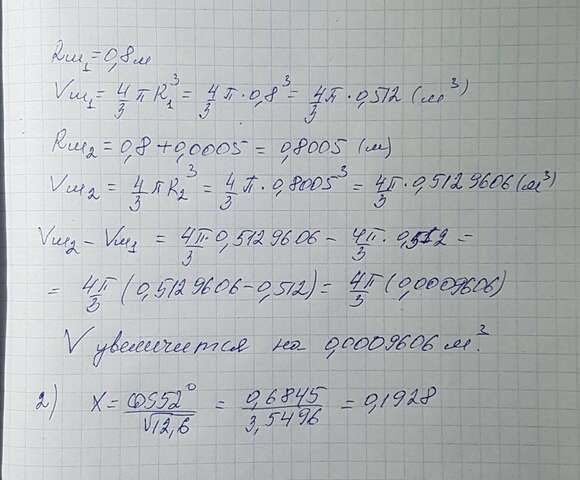 Rш₁ = 0,8 м
Vш₁ = 4/3 π R₁³ = 4/3 π · 0,8³ = 4/3 π · 0,512 (м³)
Rш₂ = 0,8 + 0,0005 = 0,8005 (м)
Vш₂ = 4/3 π R₂³ = 4/3 π · 0,8005³ = 4π/3 · 0,5129606 (м³)
Vш₂ – Vш₁ = 4π/3 · 0,5129606 – 4π/3 · 0,512 =
= 4π/3 (0,5129606 – 0,512) = 4π/3 (0,0009606)
V увеличится на 0,0009606 м³.
2) X = cos52° / √12,6 = 0,6845 / 3,5496 = 0,1928